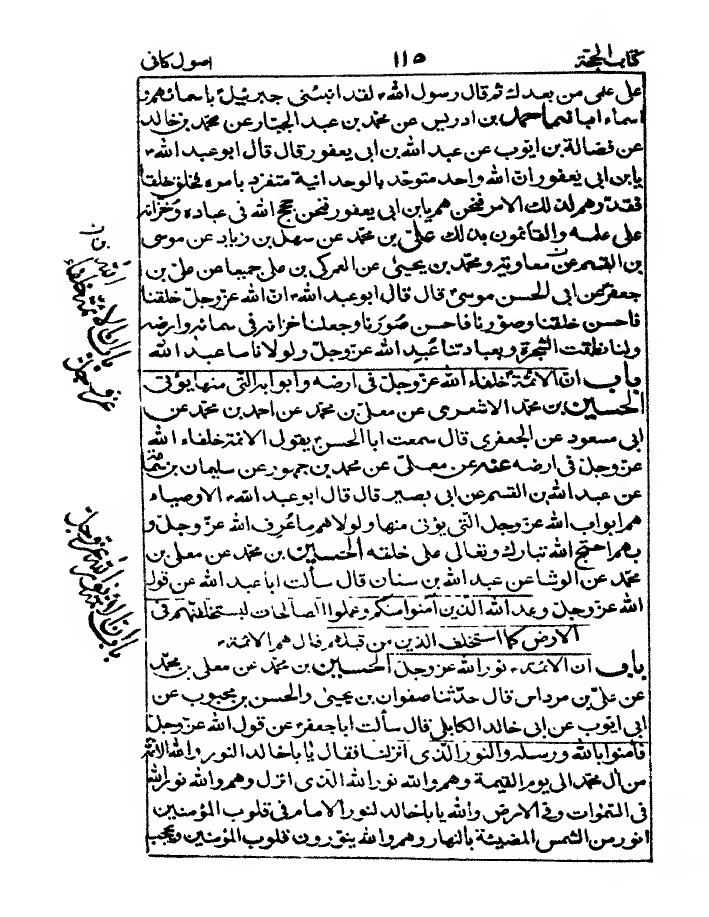 كتاب الحجة
١١٥
اصول كافى
على علمى من بعدك ثم قال رسول الله ؐ لقد انبئنى جبرئيل ؑ باسمائهم و
اسماء ابائهم احمد بن ادريس عن محمد بن عبد الجبار عن محمد بن خالد
عن فضالة بن ايوب عن عبد الله بن ابى يعفور قال قال ابو عبد الله ؑ
يا بن ابى يعفور ان الله واحد متوحد بالوحدانية متفرد بامره فخلق خلقا
فقدرهم لذلك الامر فنحن هم يا بن ابى يعفور فنحن حجج الله فى عباده وخزانه
على علمه والقائمون بذلك على بن محمد عن سهل بن زياد عن موسى
بن القسم عن معاوية ومحمد بن يحيى عن العمركى بن على جميعا عن على بن
جعفر عن ابى الحسن موسى ؑ قال قال ابو عبد الله ؑ ان الله عز وجل خلقنا
فاحسن خلقنا وصورنا فاحسن صورنا وجعلنا خزانه فى سمائه وارضه
ولنا نطقت الشجرة وبعبادتنا عُبد الله عز وجل ولولانا ما عبد الله
باب ان الائمة ؑ خلفاء الله عز وجل فى ارضه وابوابه التى منها يؤتى
الحسين بن محمد الاشعرى عن معلى بن محمد عن احمد بن محمد عن
ابى مسعود عن الجعفرى قال سمعت ابا الحسن ؑ يقول الائمة خلفاء الله
عز وجل فى ارضه عنه عن معلى عن محمد بن جمهور عن سليمان بن سماعة
عن عبد الله بن القسم عن ابى بصير قال قال ابو عبد الله ؑ الاوصياء
هم ابواب الله عز وجل التى يؤتى منها ولولاهم ما عُرف الله عز وجل و
بهم احتج الله تبارك وتعالى على خلقه الحسين بن محمد عن معلى بن
محمد عن الوشا عن عبد الله بن سنان قال سألت ابا عبد الله عن قول
الله عز وجل وعد الله الذين امنوا منكم وعملوا الصالحات ليستخلفنهم فى
الارض كما استخلف الذين من قبلهم قال هم الائمة ؑ
باب ان الائمة ؑ نور الله عز وجل الحسين بن محمد عن معلى بن محمد
عن على بن مرداس قال حدثنا صفوان بن يحيى والحسن بن محبوب عن
ابى ايوب عن ابى خالد الكابلى قال سألت ابا جعفر ؑ عن قول الله عز وجل
فامنوا بالله ورسله والنور الذى انزلنا فقال يا با خالد النور والله الائمة
من ال محمد الى يوم القيمة وهم والله نور الله الذى انزل وهم والله نور الله
فى السموات وفى الارض والله يا با خالد لنور الامام فى قلوب المؤمنين
انور من الشمس المضيئة بالنهار وهم والله ينورون قلوب المؤمنين ويحجب
باب ان الائمة خلفاء
عز وجل
باب ان الائمة نور الله عز وجل